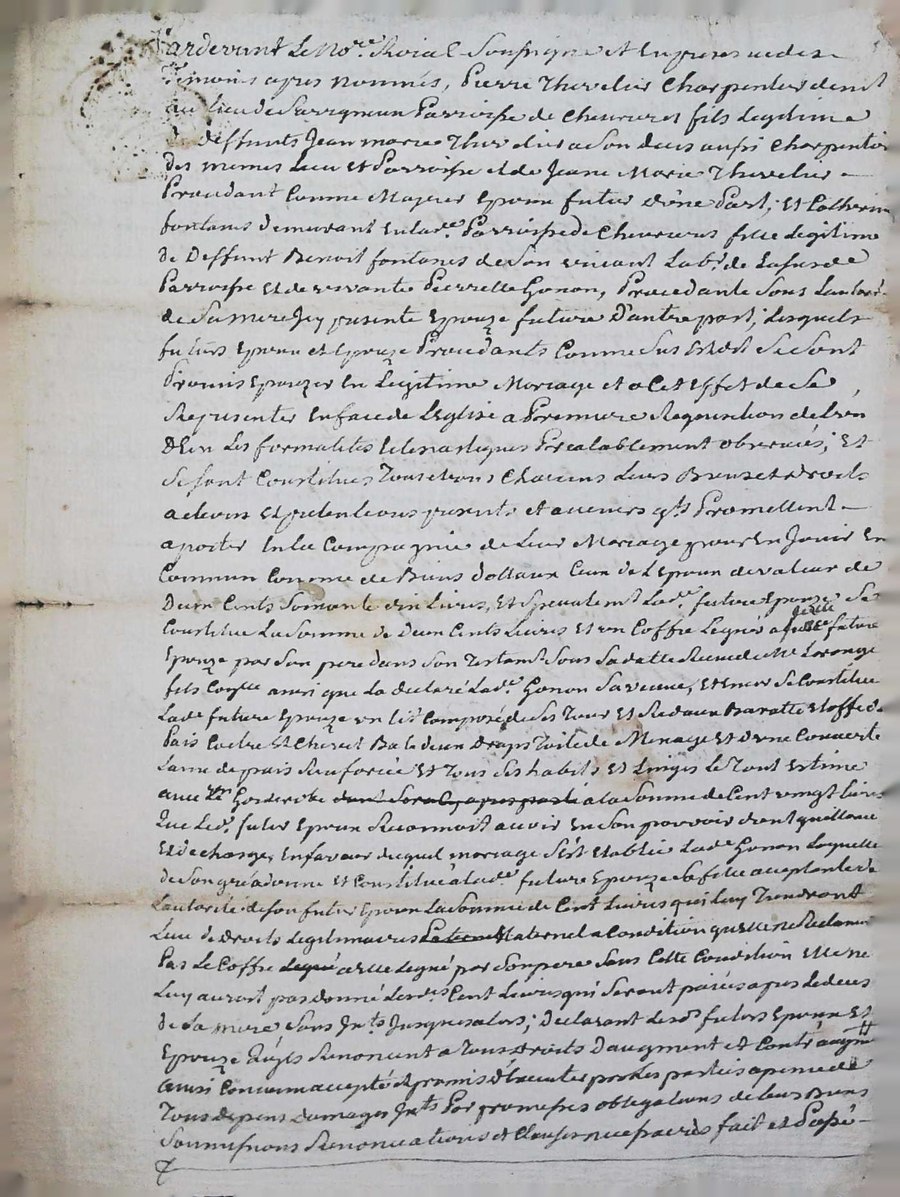 Pardevant Le No.re Roial Soussigné et En presence des
Temoins apres nommés, Pierre Thevelier Charpentier dem.t
au lieu de Savignieux Parroisse de Chevriere fils Legitime
de deffunts Jean marie Thevelier a Son deces aussi Charpentier
des memes Lieu et Parroisse et de Jeane Marie Thevelier
Procedant Comme Majeur Epoux futur d'une Part; Et Catherine
fontanes demeurant En lad.e Parroisse de Chevrieres fille Legitime
de Deffunt Benoit fontanes de Son vivant Lab.r de
Parroisse et de vivante Pierrette Gonon, Procedante Sous L'autorité
de Sa mere Icy presente Epouze future D'autre part; Lesquels
futurs Epoux et Epouze Procedants Comme Sus Est dit Se Sont
Promis Epouzer En Legitime Mariage et a Cet Effet de Se
Represénter En face de L'Eglise a Premiere Requisition de L'un
d'Eux Les formalités Préalablement observées; Et
Se Sont Constitués Tous et uns Chacuns Leurs Biens et droits
actions et pretentions presents et avenirs q.ls Promettent
aporter En La Compagnie de Leur Mariage pour En Jouir En
Commun Comme de Biens dottaux Ceux de L'Epoux de valeur de
Deux Cents Soixante dix Livres, Et Specialem.t Lad.e future Epouze Se
Constitue La Somme de Deux Cents Livres Et un Coffre Legué a future
Epouze par Son pere dans Son Testam.t Sous Sa datte Recue de M.e
fils ainsi que La declaré Lad.e Gonon Sa veuve, Et encor Se Constitue
Lad.e future Epouze un lit Composé de Ses Tour Et Rideaux Etoffe de
Pais Coetre Et Chevet Bale deux Draps Toile de Menage Et d'une Couverte
Laine de pais Renforcée Et Tous Ses habits Et Linges Le Tout Estimé
avec Garderobe a la Somme de Cent vingt Livres
Que Led. futur Epoux Reconnoit avoir En Son pouvoir dont quittance
Et decharge, En faveur duquel mariage S'est Etablie Lad.e Gonon Laquelle
de Son gré a donné Et Constitué a Lad.e future Epouze Sa fille acceptante de
L'autorité de Son futur Epoux La Somme de Cent Livres qui Luy Tiendront
Lieu de Droits Legitimaires Maternel a Condition qu'Elle ne Reclamera
Pas Le Coffre a Elle Legué par Son pere Sans Cette Condition Elle ne
Luy auroit pas donné Lesd.es Cent Livres qui Seront païés apres Le deces
de Sa mere Sans Int.s Jusques alors; declarant Lesd. futurs Epoux Et
Epouze Renoncer a Tous Droits d'augment et Contre augm.t
ainsi Convenu accepté et promis d'Executer par Les parties a peine de
Tous depens domages Int.s Par promesses obligations de Leurs Biens
Soumissions Renonciations et Clauses necessaires fait et Passé